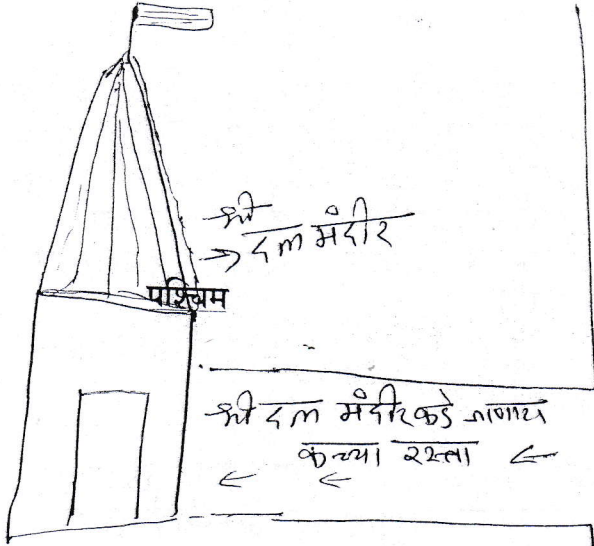 श्री
दत्त मंदीर
पश्चिम
श्री दत्त मंदीरकडे जाणारा
कच्चा रस्ता